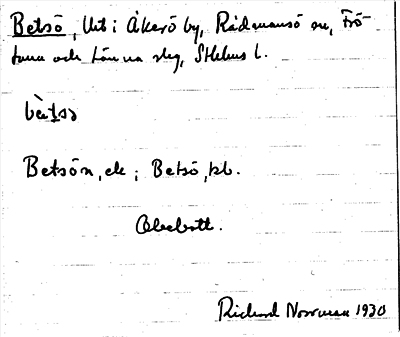 Betsö, Ut i Åkerö by, Rådmansö sn, Frö-
tuna och Länna slg, Sthlms l.
bètsɔ
Betsön, ek; Betsö, jrb.
Obebott.
Richard Norrman 1930